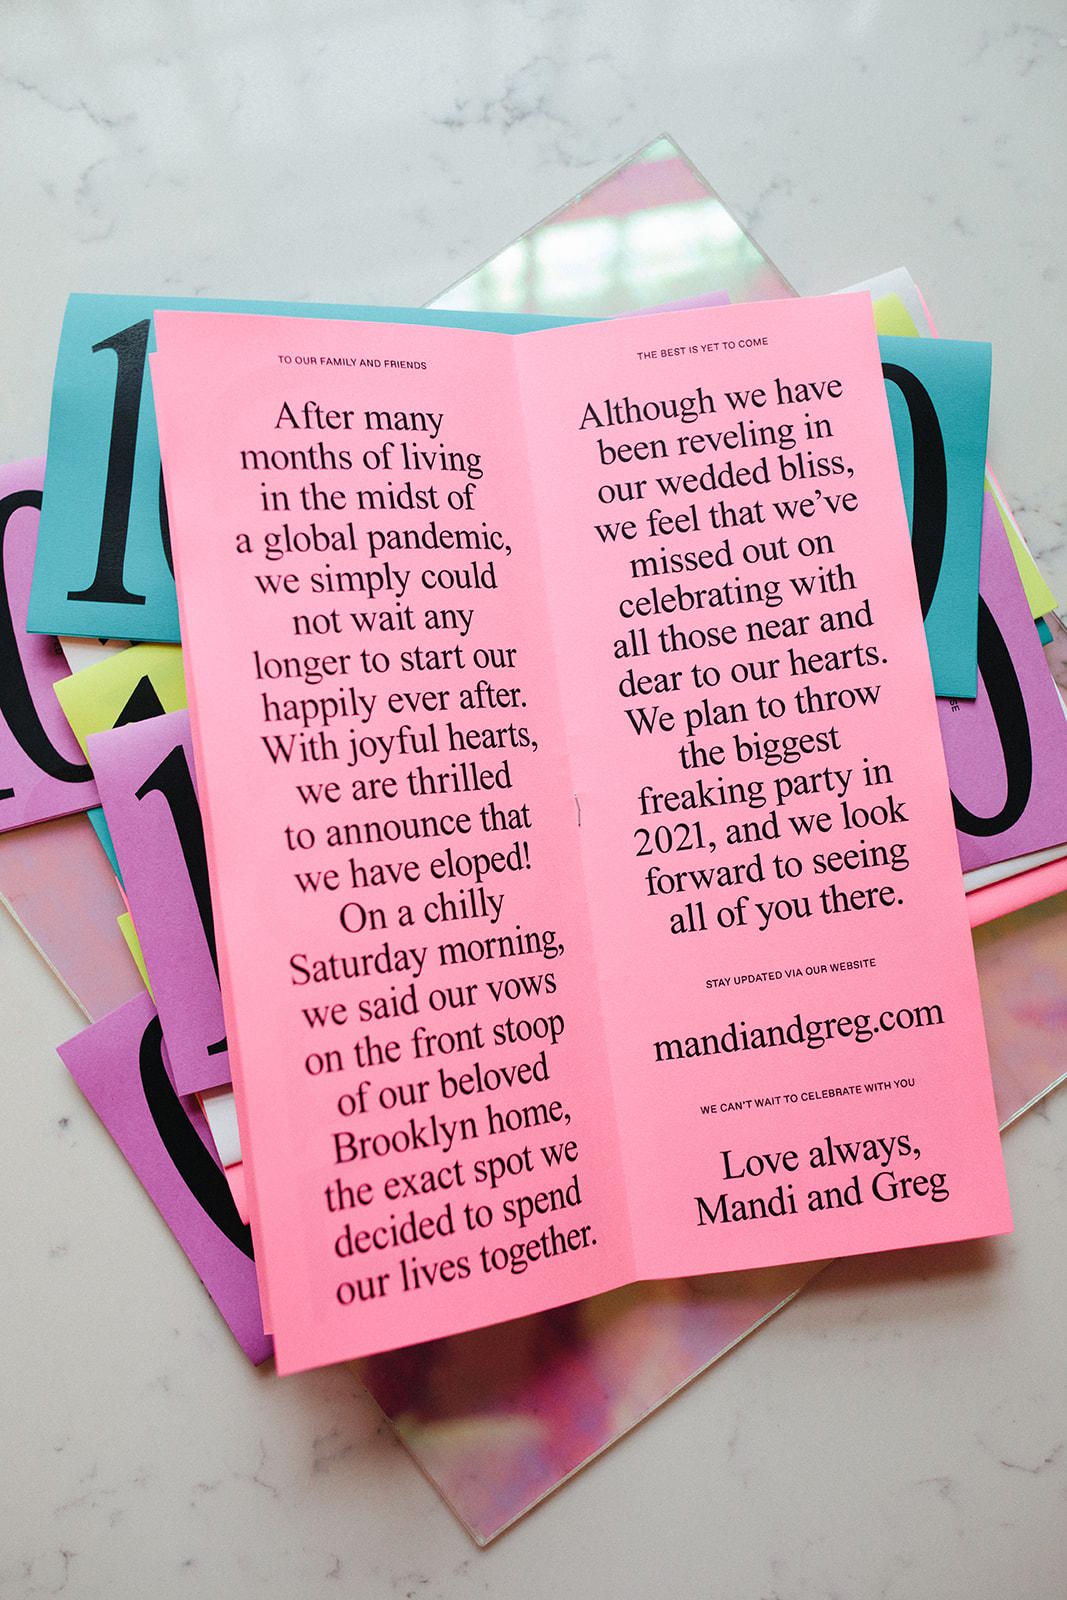 TO OUR FAMILY AND FRIENDS
After many
months of living
in the midst of
a global pandemic,
we simply could
not wait any
longer to start our
happily ever after.
With joyful hearts,
we are thrilled
to announce that
we have eloped!
On a chilly
Saturday morning,
we said our vows
on the front stoop
of our beloved
Brooklyn home,
the exact spot we
decided to spend
our lives together.
THE BEST IS YET TO COME
Although we have
been reveling in
our wedded bliss,
we feel that we've
missed out on
celebrating with
all those near and
dear to our hearts.
We plan to throw
the biggest
freaking party in
2021, and we look
forward to seeing
all of you there.
STAY UPDATED VIA OUR WEBSITE
mandiandgreg.com
WE CAN'T WAIT TO CELEBRATE WITH YOU
Love always,
Mandi and Greg